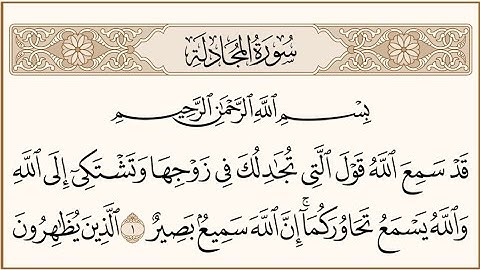 سُورَةُ المُجَادلَة
بِسْمِ اللَّهِ الرَّحْمَٰنِ الرَّحِيمِ
قَدْ سَمِعَ اللَّهُ قَوْلَ الَّتِي تُجَادِلُكَ فِي زَوْجِهَا وَتَشْتَكِي إِلَى اللَّهِ
وَاللَّهُ يَسْمَعُ تَحَاوُرَكُمَا ۚ إِنَّ اللَّهَ سَمِيعٌ بَصِيرٌ ١ الَّذِينَ يُظَاهِرُونَ